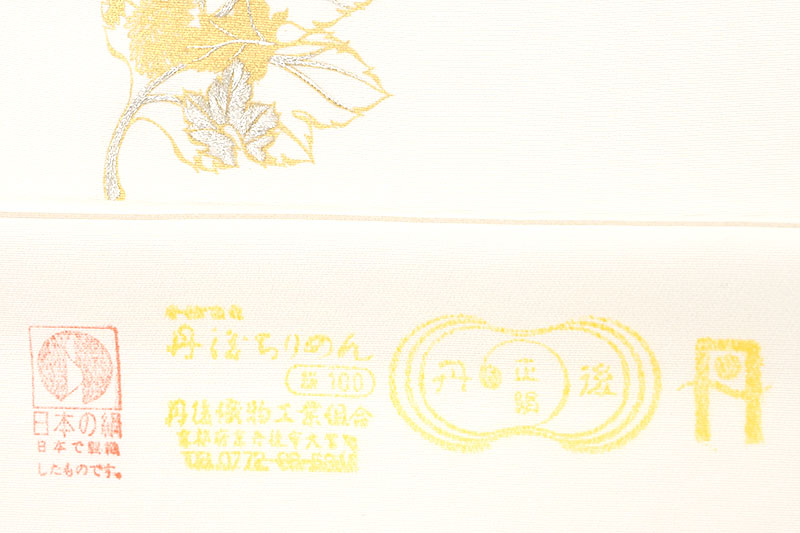 日本の絹
日本で製織
したものです。
丹後ちりめん
絹100
丹後織物工業組合
京都府京丹後市大宮町
TEL0772-68-
丹 後
正絹
丹